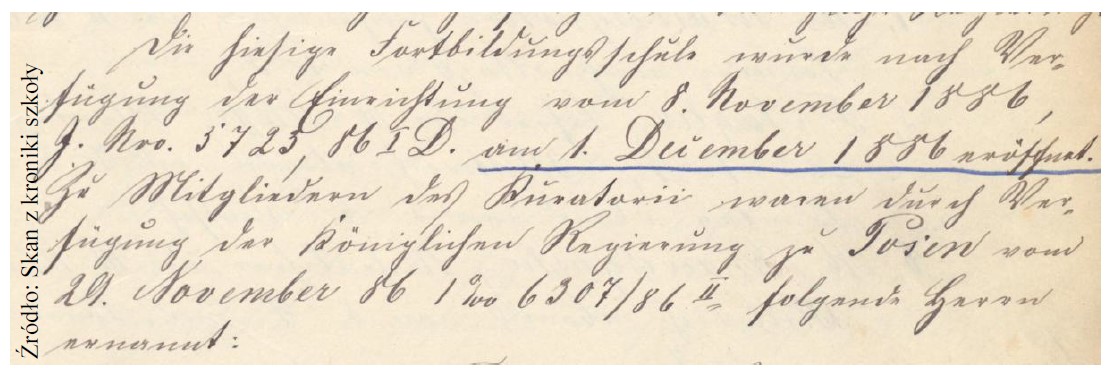 Die hiesige Fortbildungsschule wurde nach Ver-
fügung der Einrichtung vom 8. November 1886,
J. Nro. 5723, 86 I D. am 1. December 1886 eröffnet.
Zu Mitgliedern des Kuratorii waren durch Ver-
fügung der Königlichen Regierung zu Posen vom
29. November 86 6307/86 II folgende Herren
ernannt:
Źródło: Skan z kroniki szkoły